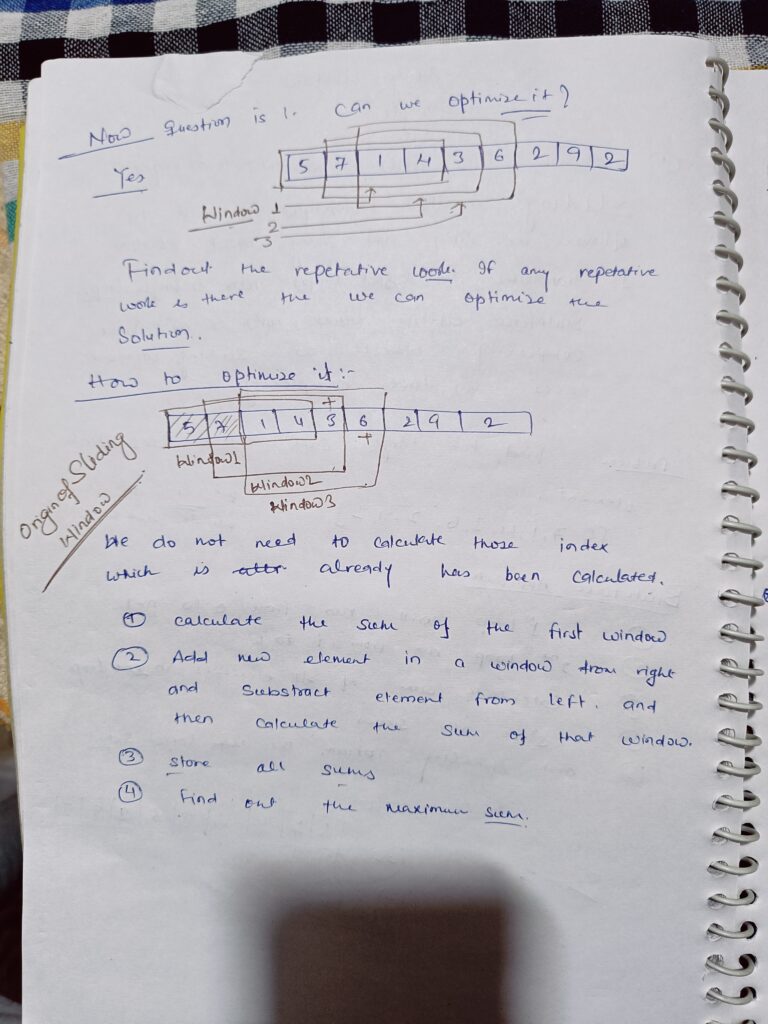 Now Question is 1. Can we optimize it?
Yes
5 7 1 4 3 6 2 9 2
Window 1
2
3
Findout the repetative work. If any repetative
work is there the we can optimize the
Solution.
How to optimize it:-
+
5 7 1 4 3 6 2 9 2
+
Window1
Window2
Window3
Origin of Sliding
Window
We do not need to calculate those index
which is already has been calculated.
① calculate the sum of the first window
② Add new element in a window from right
and substract element from left. and
then calculate the sum of that window.
③ store all sums
④ Find out the maximum sum.